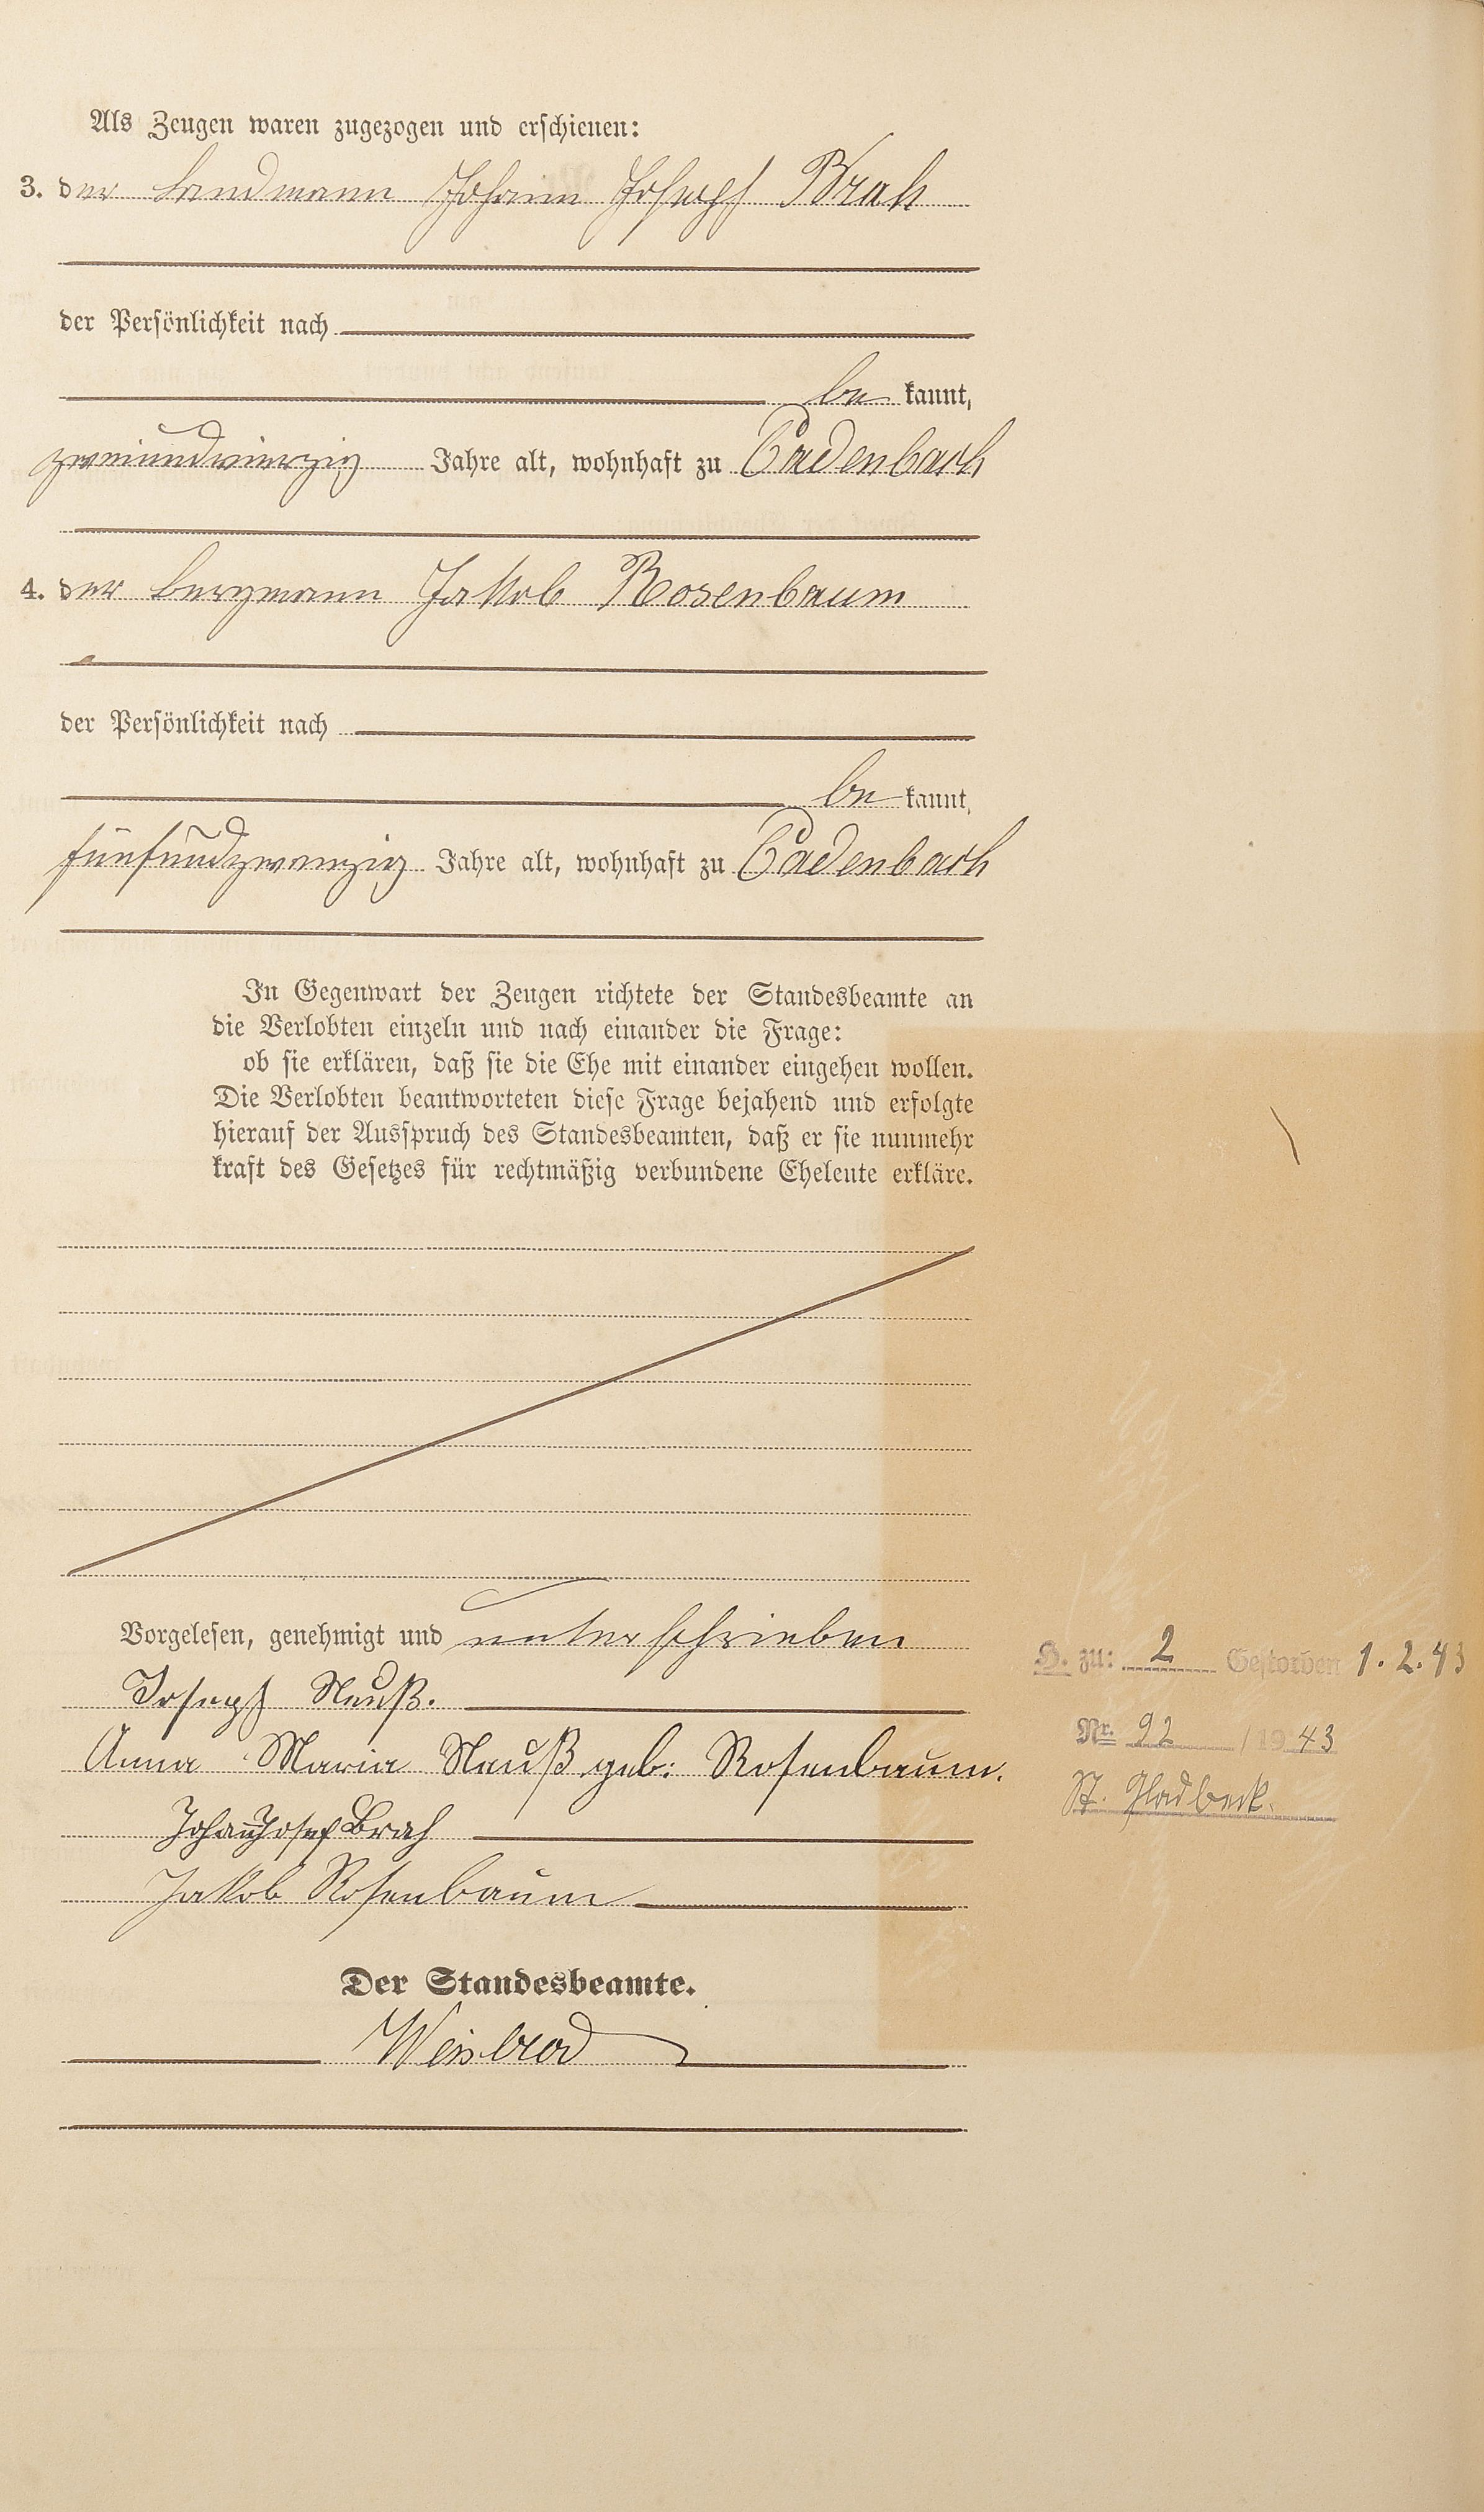 Als Zeugen waren zugezogen und erschienen:
3. der Landmann Johann Joseph Brah
der Persönlichkeit nach
be kannt,
zweiundvierzig Jahre alt, wohnhaft zu Cadenbach
4. der Bergmann Jakob Rosenbaum
der Persönlichkeit nach
be kannt,
fünfundzwanzig Jahre alt, wohnhaft zu Cadenbach
In Gegenwart der Zeugen richtete der Standesbeamte an
die Verlobten einzeln und nach einander die Frage:
ob sie erklären, daß sie die Ehe mit einander eingehen wollen.
Die Verlobten beantworteten diese Frage bejahend und erfolgte
hierauf der Ausspruch des Standesbeamten, daß er sie nunmehr
kraft des Gesetzes für rechtmäßig verbundene Eheleute erkläre.
Vorgelesen, genehmigt und unterschrieben
Joseph Neuß.
Anna Maria Neuß geb: Rosenbaum.
Johann Josef Brah
Jakob Rosenbaum
Der Standesbeamte.
Weisbrod
H. zu: 2 Gestorben 1.2.43
Nr. 92 / 1943
St. Gladbeck.